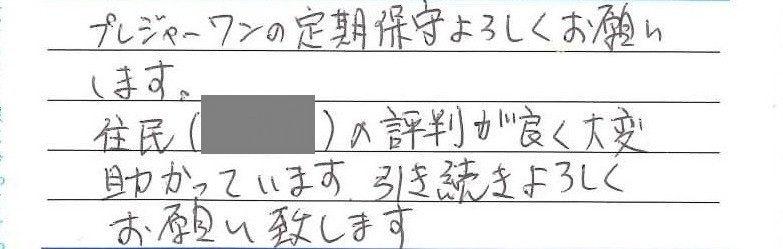 プレジャーワンの定期保守よろしくお願い
します。
住民(        )の評判が良く大変
助かっています 引き続きよろしく
お願い致します